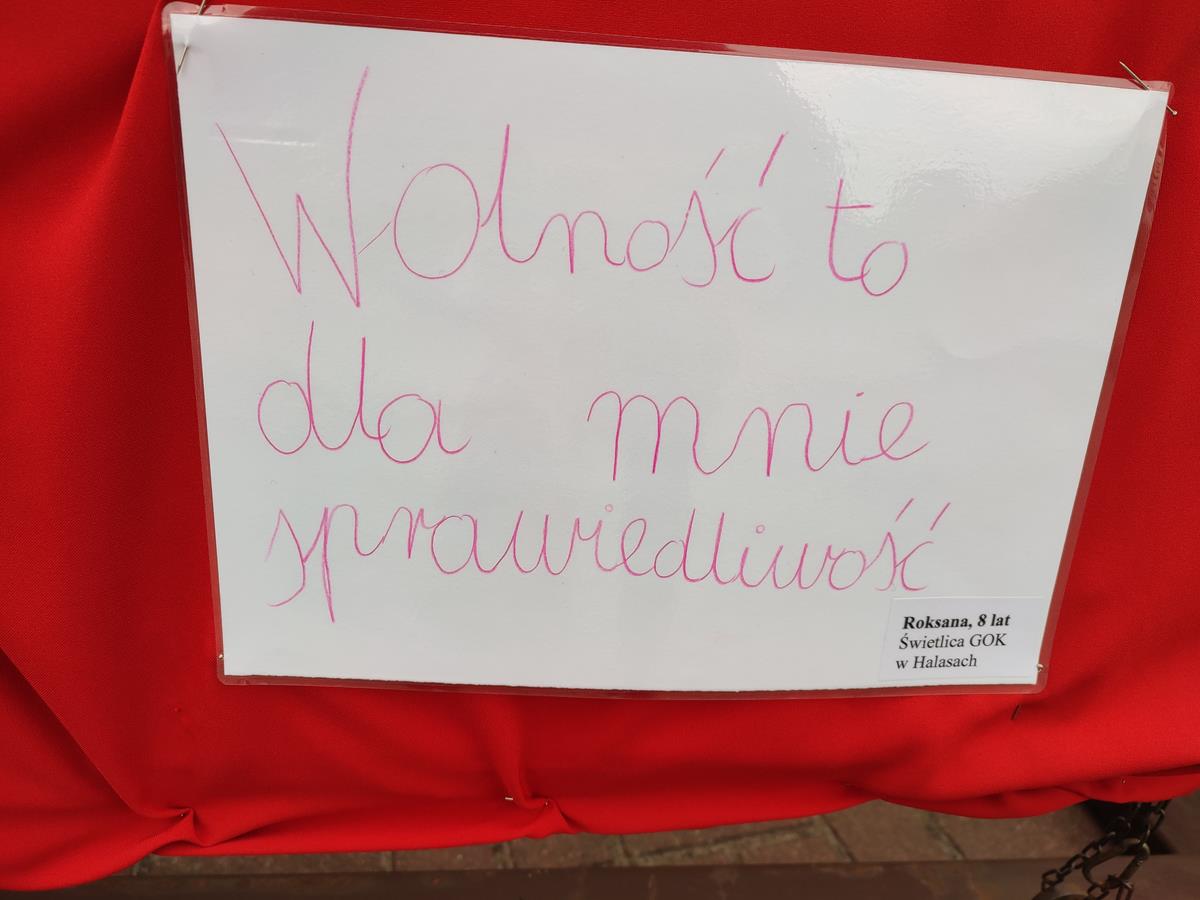 Wolność to
dla mnie
sprawiedliwość
Roksana, 8 lat
Świetlica GOK
w Halasach